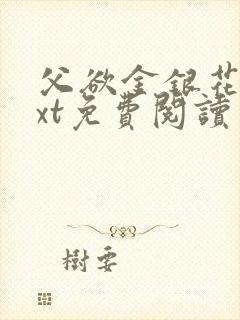 父欲金银花
xt免費閱讀
樹要